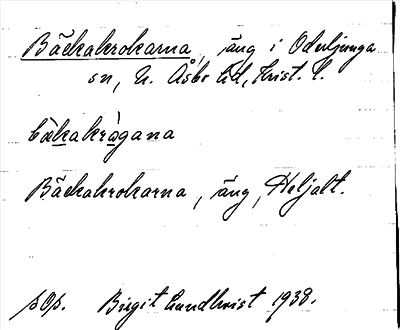 Bäckakrokarna, äng i Oderljunga
sn, N. Åsbo hd, Krist. l.
bä̀kakrågana
Bäckakrokarna, äng, Heljalt.
pOp. Birgit Lundkvist 1938.